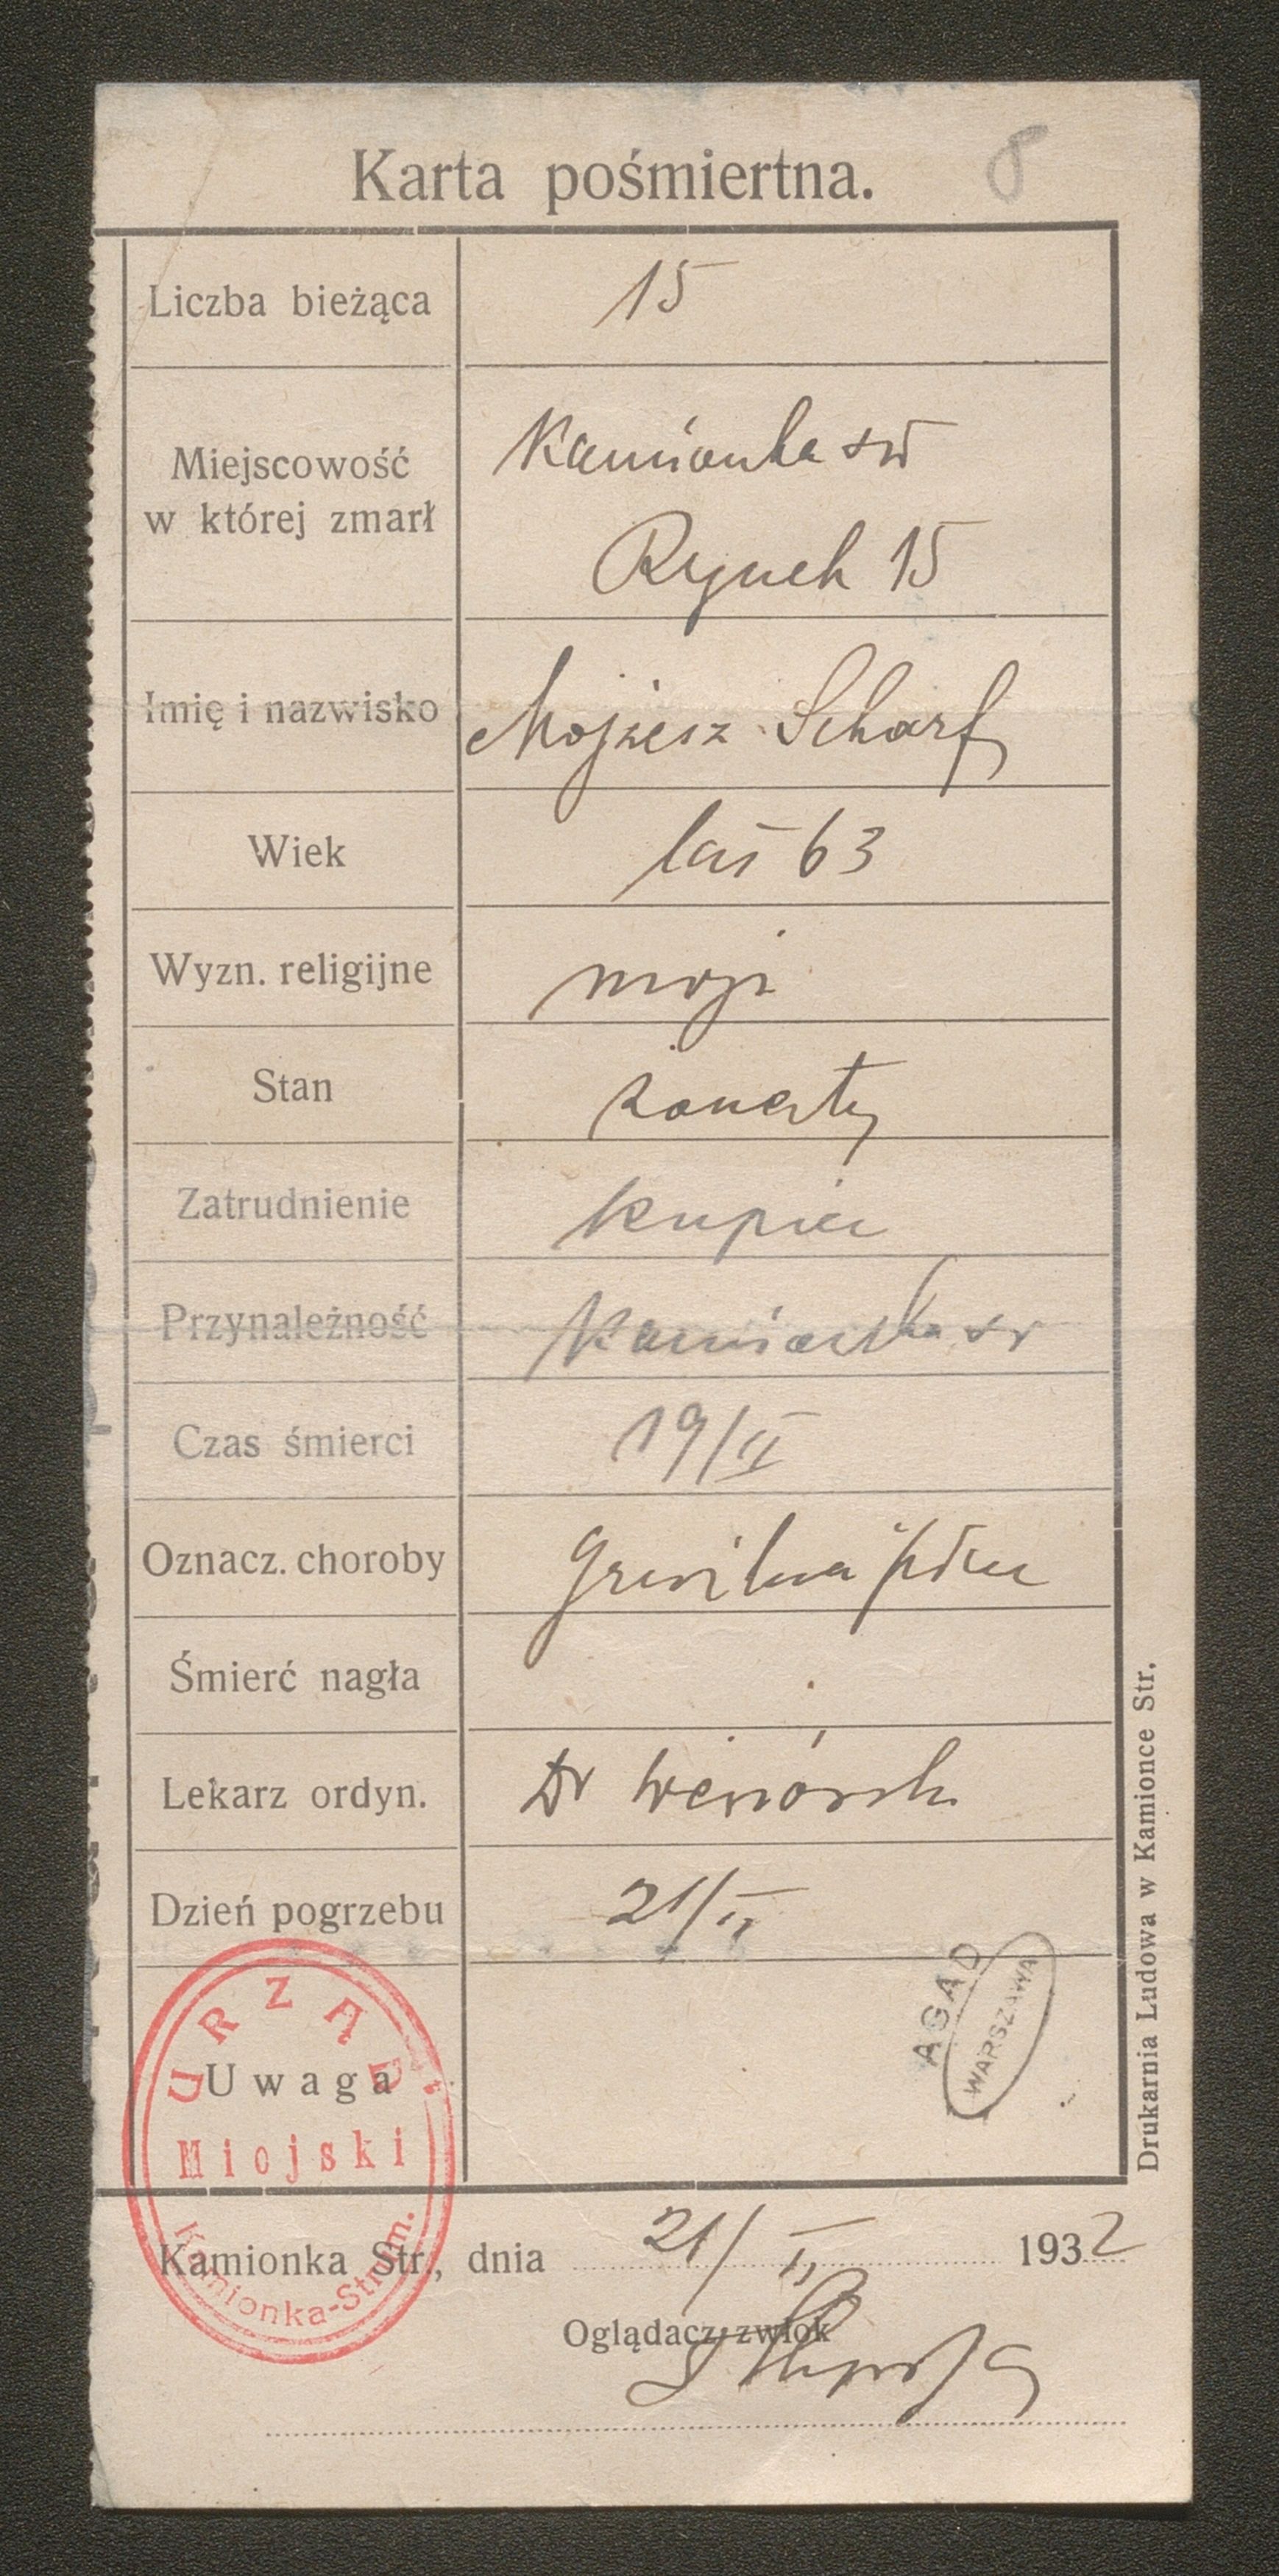 Karta pośmiertna. 8
Liczba bieżąca 15
Miejscowość w której zmarł Kamionka str
Rynek 15
Imię i nazwisko Mojżesz Scharf
Wiek lat 63
Wyzn. religijne mojż
Stan żonaty
Zatrudnienie kupiec
Przynależność Kamionka str
Czas śmierci 19/II
Oznacz. choroby Gruźlica płuc
Śmierć nagła
Lekarz ordyn. Dr
Dzień pogrzebu 21/II
AGAD
WARSZAWA
Uwaga
URZĄD
Miejski
Kamionka-Strum.
Kamionka Str., dnia 21/II 1932
Oglądacz zwłok
Drukarnia Ludowa w Kamionce Str.